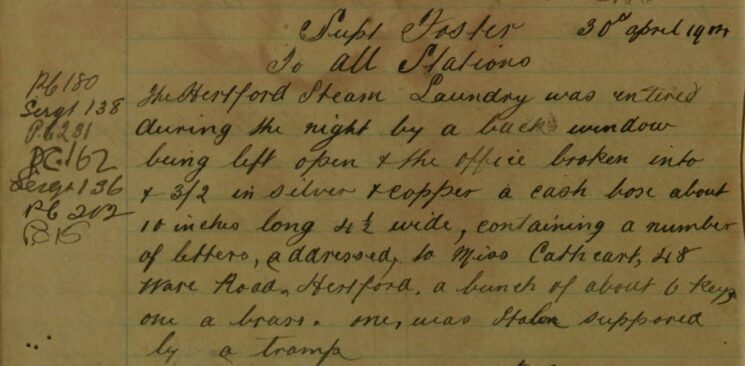 Supt Foster 30th april 19
To All Stations
The Hertford Steam Laundry was entired
during the night by a back window
being left open & the office broken into
& 3/2 in silver & copper a cash box about
10 inches long 4½ wide, containing a number
of letters, addressed, to Miss Cathcart, 48
Ware Road, Hertford, a bunch of about 6 keys
one a brass. one, was Stolen supposed
by a tramp
PC 180
Sergt 138
PC 231
PC 162
Sergt 136
PC 202